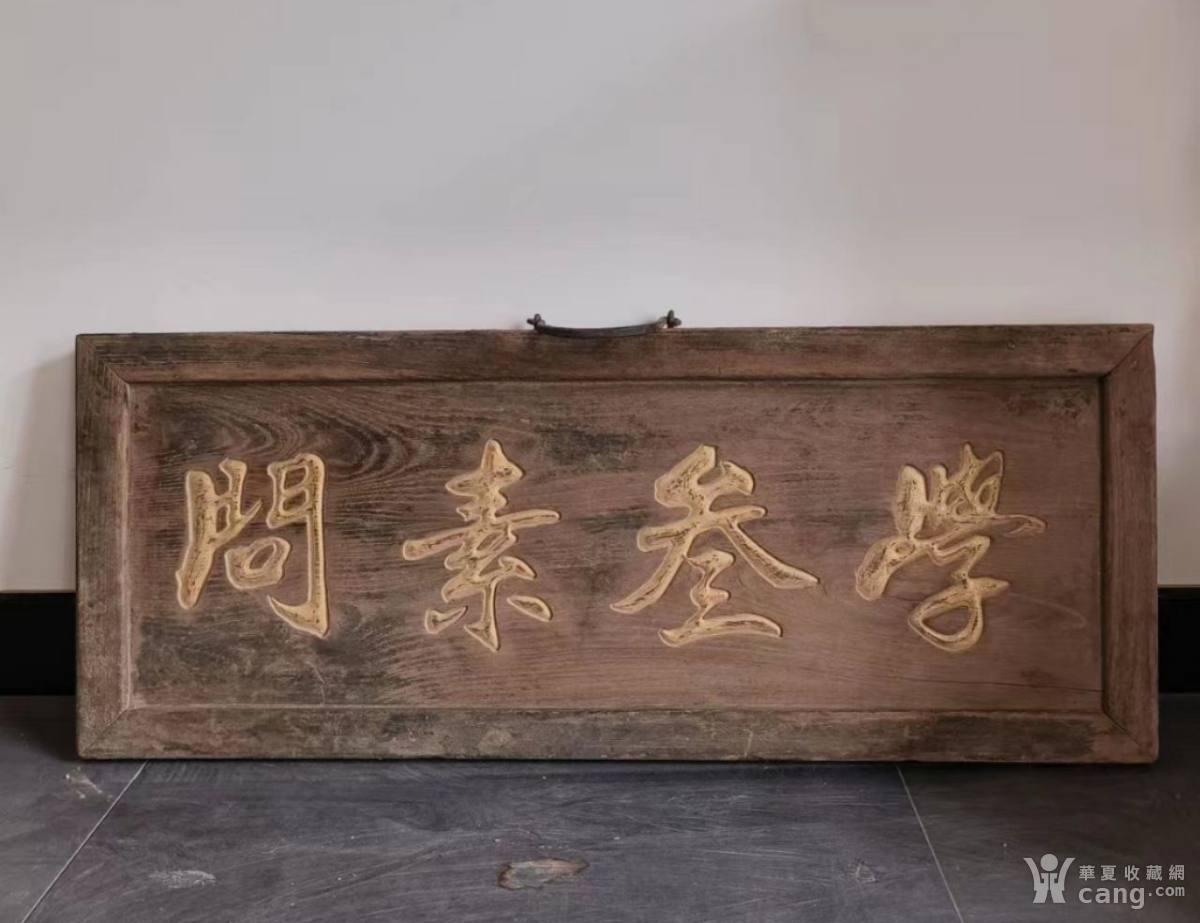 學叄素問
華夏收藏網
cang.com